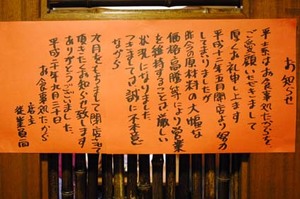 お知らせ
平素はお食事処たかをを
ご愛顧いただきまして
厚くお礼申し上げます
平成十二年五月開店より
してまいりましたが
昨今の原材料の大幅な
価格の高騰等により営業
を維持することは厳しい
状況になりました
つきましては誠に不本意
ながら
九月をもちまして閉店させて
頂きたくお知らせ致します
ありがとうございました
平成二十年九月三十日
お食事処たかを
店主
従業員一同